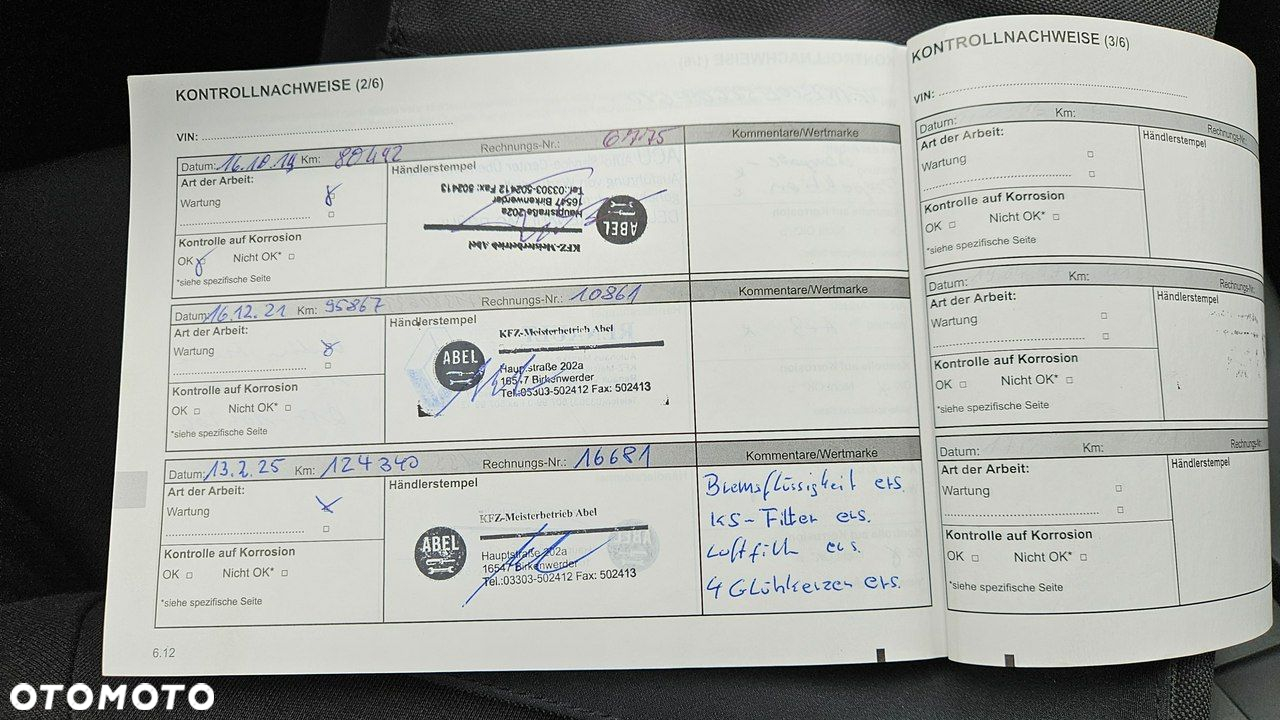 KONTROLLNACHWEISE (2/6)
VIN:
Datum: 16.10.19 Km: 80492 Rechnungs-Nr.: 6775 Kommentare/Wertmarke
Art der Arbeit: Händlerstempel
Wartung
KFZ-Meisterbetrieb Abel
ABEL
Hauptstraße 202a
16547 Birkenwerder
Tel.:03303-502412 Fax: 502413
Kontrolle auf Korrosion
OK Nicht OK*
*siehe spezifische Seite
Datum: 16.12.21 Km: 95867 Rechnungs-Nr.: 10861 Kommentare/Wertmarke
Art der Arbeit: Händlerstempel
Wartung
KFZ-Meisterbetrieb Abel
ABEL
Hauptstraße 202a
16547 Birkenwerder
Tel.:03303-502412 Fax: 502413
Kontrolle auf Korrosion
OK Nicht OK*
*siehe spezifische Seite
Datum: 13.2.25 Km: 124340 Rechnungs-Nr.: 16681 Kommentare/Wertmarke
Art der Arbeit: Händlerstempel
Wartung
KFZ-Meisterbetrieb Abel
ABEL
Hauptstraße 202a
16547 Birkenwerder
Tel.:03303-502412 Fax: 502413
Bremsflüssigkeit ers.
KS-Filter ers.
Luftfilt. ers.
4 Glühkerzen ers.
Kontrolle auf Korrosion
OK Nicht OK*
*siehe spezifische Seite
6.12
KONTROLLNACHWEISE (3/6)
VIN:
Datum: Km: Rechnungs-Nr.:
Art der Arbeit: Händlerstempel
Wartung
Kontrolle auf Korrosion
OK Nicht OK*
*siehe spezifische Seite
Datum: Km: Rechnungs-Nr.
Art der Arbeit: Händlerstempel
Wartung
Kontrolle auf Korrosion
OK Nicht OK*
*siehe spezifische Seite
Datum: Km: Rechnungs-Nr.
Art der Arbeit: Händlerstempel
Wartung
Kontrolle auf Korrosion
OK Nicht OK*
*siehe spezifische Seite
OTOMOTO